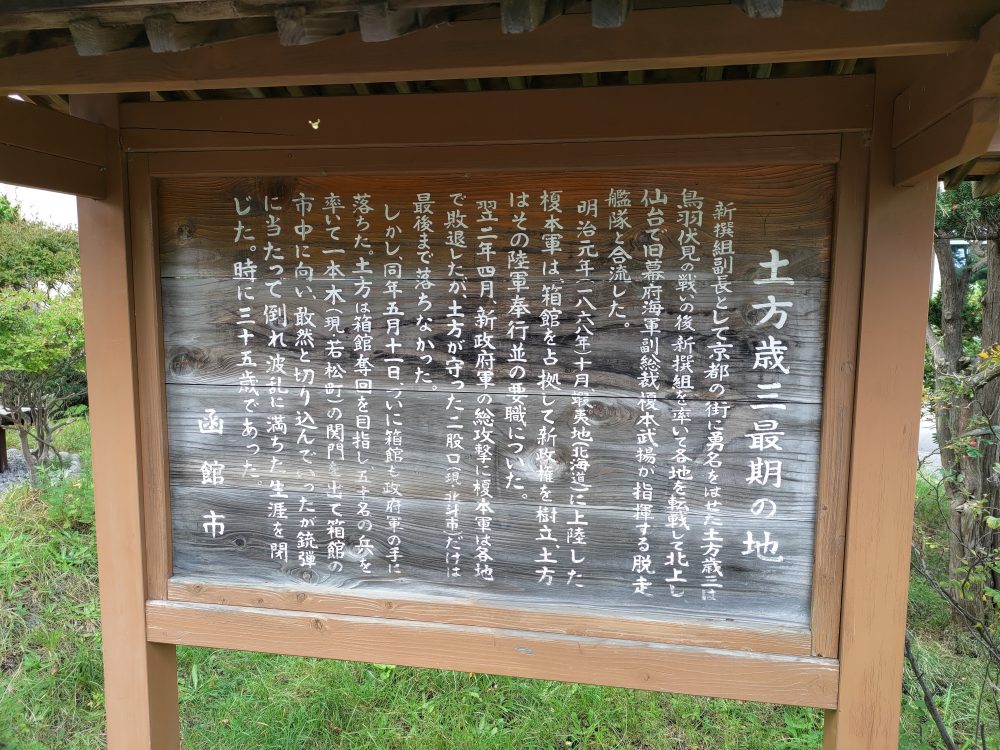 土方歳三最期の地
新撰組副長として京都の街に勇名をはせた土方歳三は
鳥羽伏見の戦いの後、新撰組を率いて各地を転戦して北上し
仙台で旧幕府海軍副総裁榎本武揚が指揮する脱走
艦隊と合流した。
明治元年(一八六八年)十月、蝦夷地(北海道)に上陸した
榎本軍は、箱館を占拠して新政権を樹立、土方
はその陸軍奉行並の要職についた。
翌二年四月、新政府軍の総攻撃に榎本軍は各地
で敗退したが、土方が守った二股口(現、北斗市)だけは
最後まで落ちなかった。
しかし、同年五月十一日、ついに箱館も政府軍の手に
落ちた。土方は箱館奪回を目指し、五十名の兵を
率いて一本木(現、若松町)の関門を出て箱館の
市中に向い、敢然と切り込んで ったが銃弾
に当たって倒れ波乱に満ちた生涯を閉
じた。時に三十五歳であった。
函館市